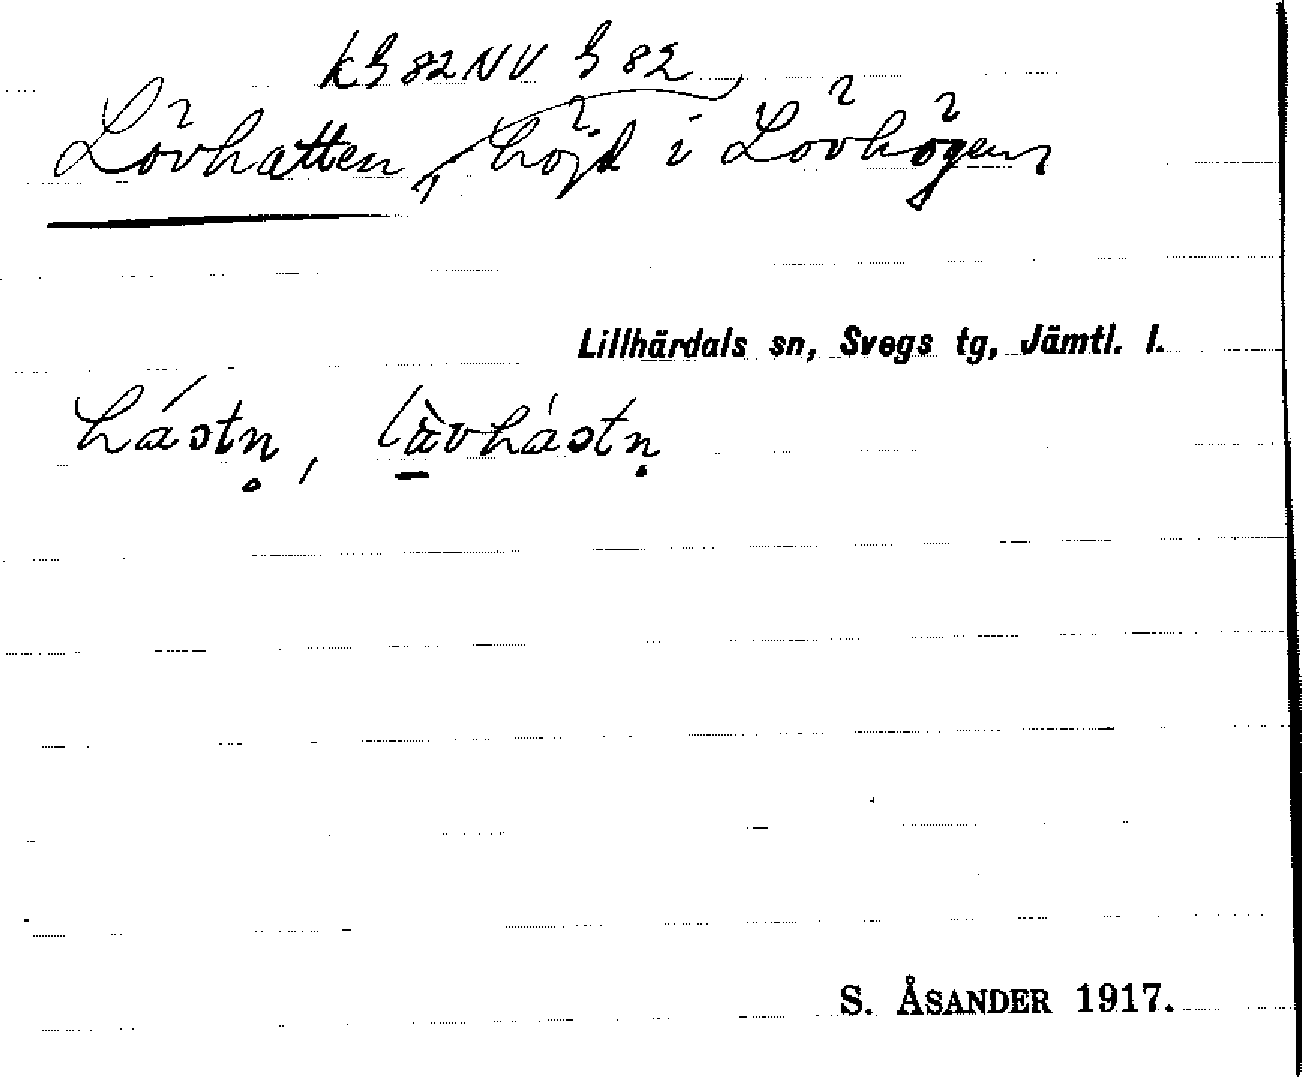 k§ 82 NV § 82
Lövhatten, höjd i Lövhögen
Lillhärdals sn, Svegs tg, Jämtl. l.
S. ÅSANDER 1917.